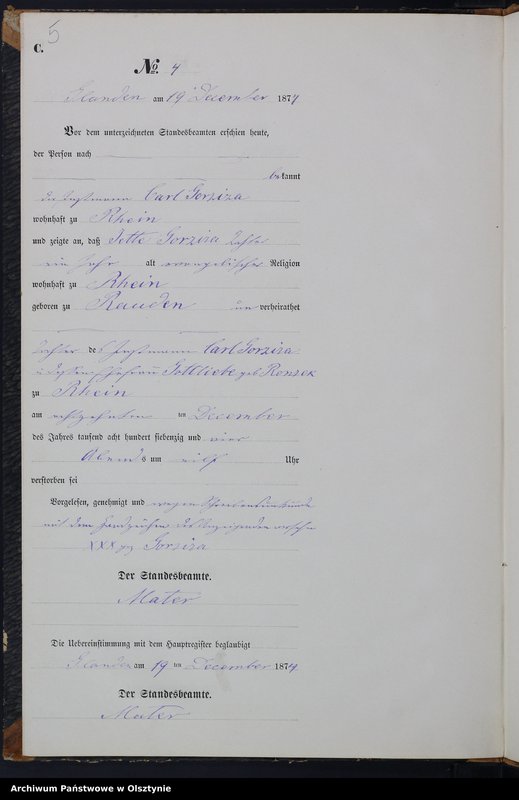 C. 5
No. 4
am 19 December 1874
Vor dem unterzeichneten Standesbeamten erschien heute,
der Person nach
bekannt
Carl Gorziza
wohnhaft zu Rhein
und zeigte an, daß Jette Gorziza Tochter
ein Jahr alt evangelischer Religion
wohnhaft zu Rhein
geboren zu Rauden unverheirathet
Tochter des Instmann Carl Gorziza
u dessen Ehefrau Gottliebe geb
zu Rhein
am achtzehnten ten December
des Jahres tausend acht hundert siebenzig und vier
Abends um eilf Uhr
verstorben sei
Vorgelesen, genehmigt und wegen Schreibensunkunde
mit dem Handzeichen des Anzeigenden versehen
XXX gez Gorziza
Der Standesbeamte.
Mater
Die Uebereinstimmung mit dem Hauptregister beglaubigt
am 19 ten December 1874.
Der Standesbeamte.
Mater
Archiwum Państwowe w Olsztynie